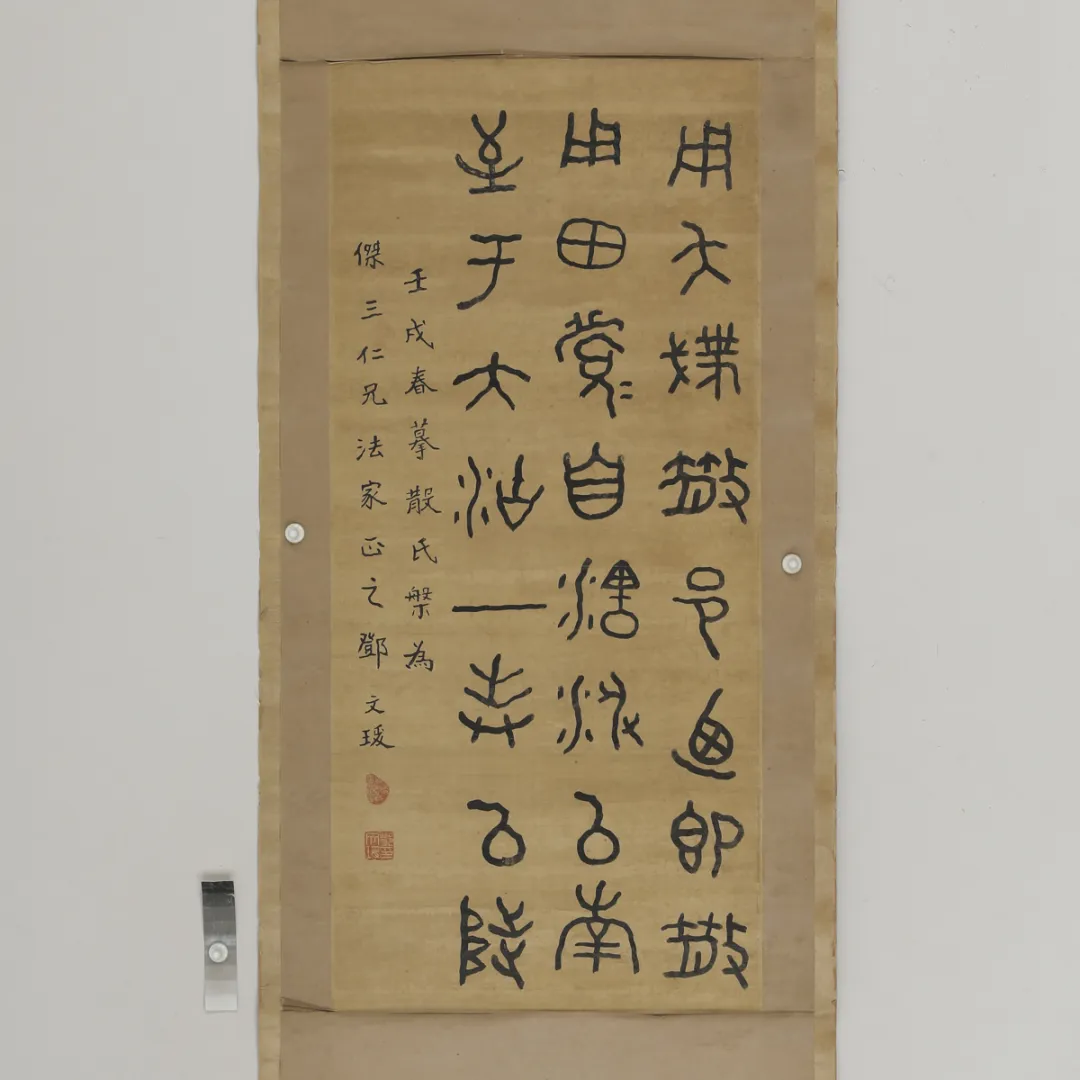 用夨撲散邑廼即散
用田眉自瀗涉以南
至于大沽一封以陟
壬戌春摹散氏槃為
傑三仁兄法家正之鄧文瑗